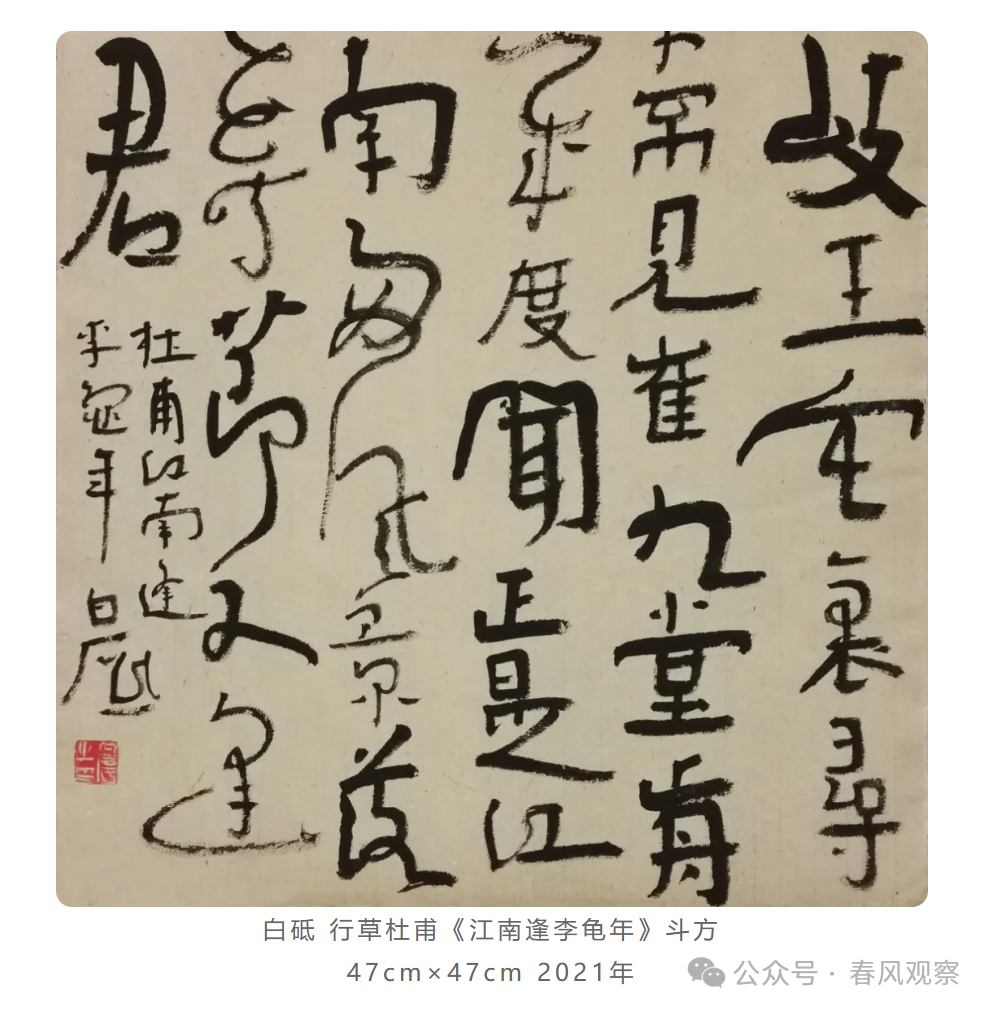 岐王宅裏尋
常見崔九堂前
幾度聞正是江
南好風景落
花時節又逢
君
杜甫江南逢
李龜年 白砥
白砥 行草杜甫《江南逢李龟年》斗方
47cm×47cm 2021年
公众号 · 春风观察